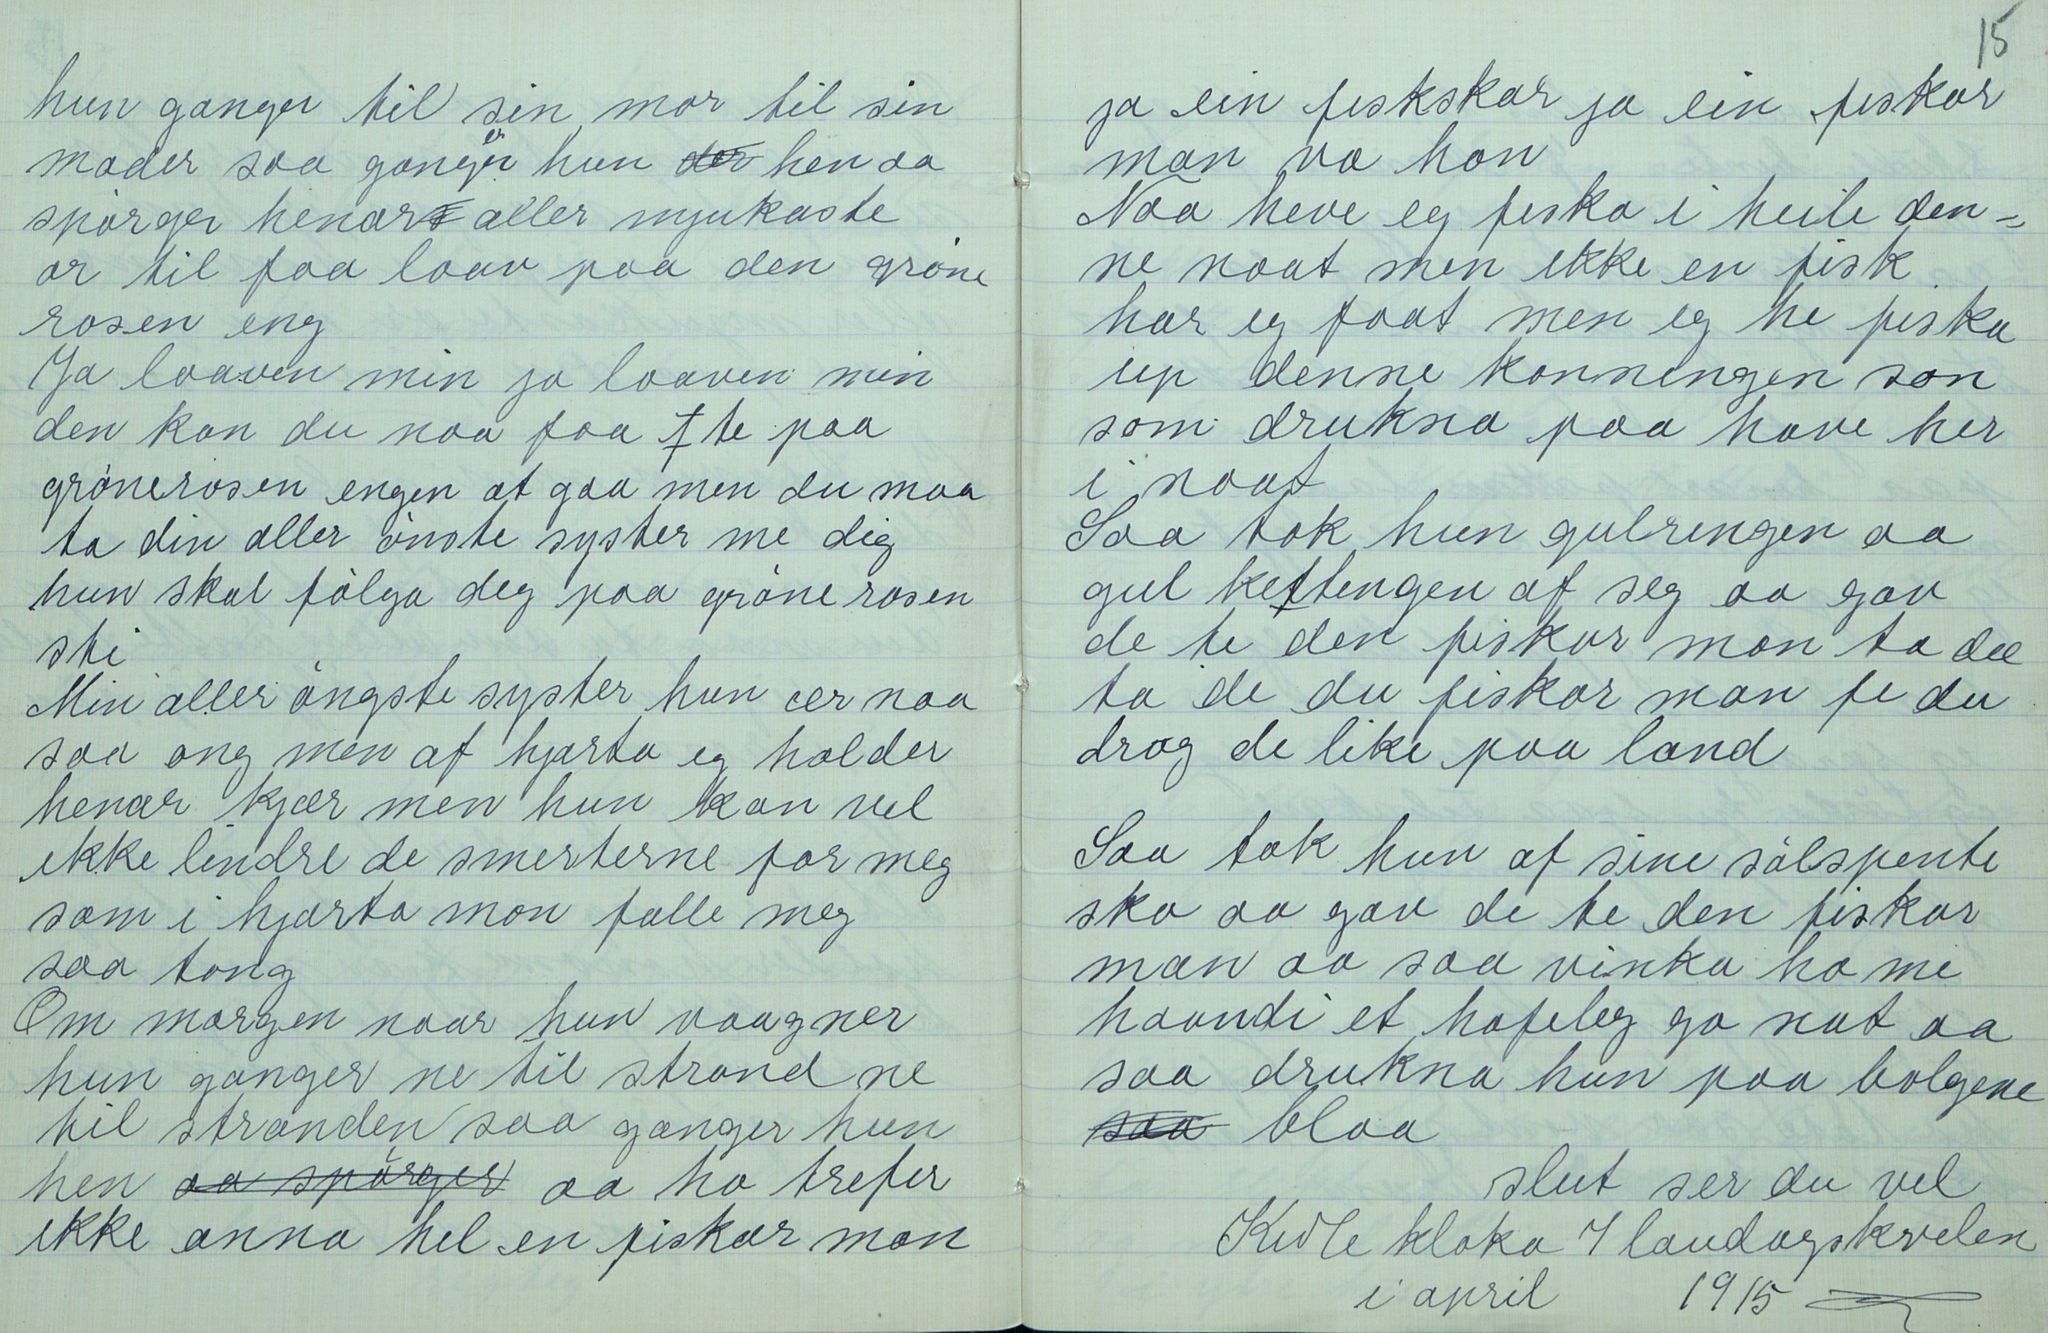 hun ganger til sin mor til sin
moder saa ganger hun der hen aa
spörger henar aller mjukaste
or til faa laav paa den gröne
rosen eng
Ja laaven min ja laaven min
den kan du naa faa te paa
grönerosen engen at gaa men du maa
ta din aller önste syster me dig
hun skal fölga deg paa gröne rosen
sti
Min aller öngste syster hun ær naa
saa ong men af hjarta eg holder
henar kjær men hun kan vel
ikke lindre de smerterne for meg
som i hjarta mon falle meg
saa tong
Om morgen naar hun vaagner
hun ganger ne til strand ne
til stranden saa ganger hun
hen aa spörger aa ho trefer
ikke anna hel en fiskar man
15
ja ein fiskskar ja ein fiskar
man va han
Naa heve eg fiska i heile den=
ne naat men ikke en fisk
har eg faat men eg he fiska
up denne konningen son
som drukna paa have her
i naat
Saa tok hun gulringen aa
gul kettengen af seg aa gav
de te den fiskar man ta du
ta de du fiskar man fe du
drog de like paa land
Saa tok hun af sine sölspente
sko aa gav de te den fiskar
man aa saa vinka ho me
haandi et hofeleg go nat aa
saa drukna hun paa bolgene
saa blaa
slut ser du vel
Kl kloka 7 laudagskvelen
i april 1915